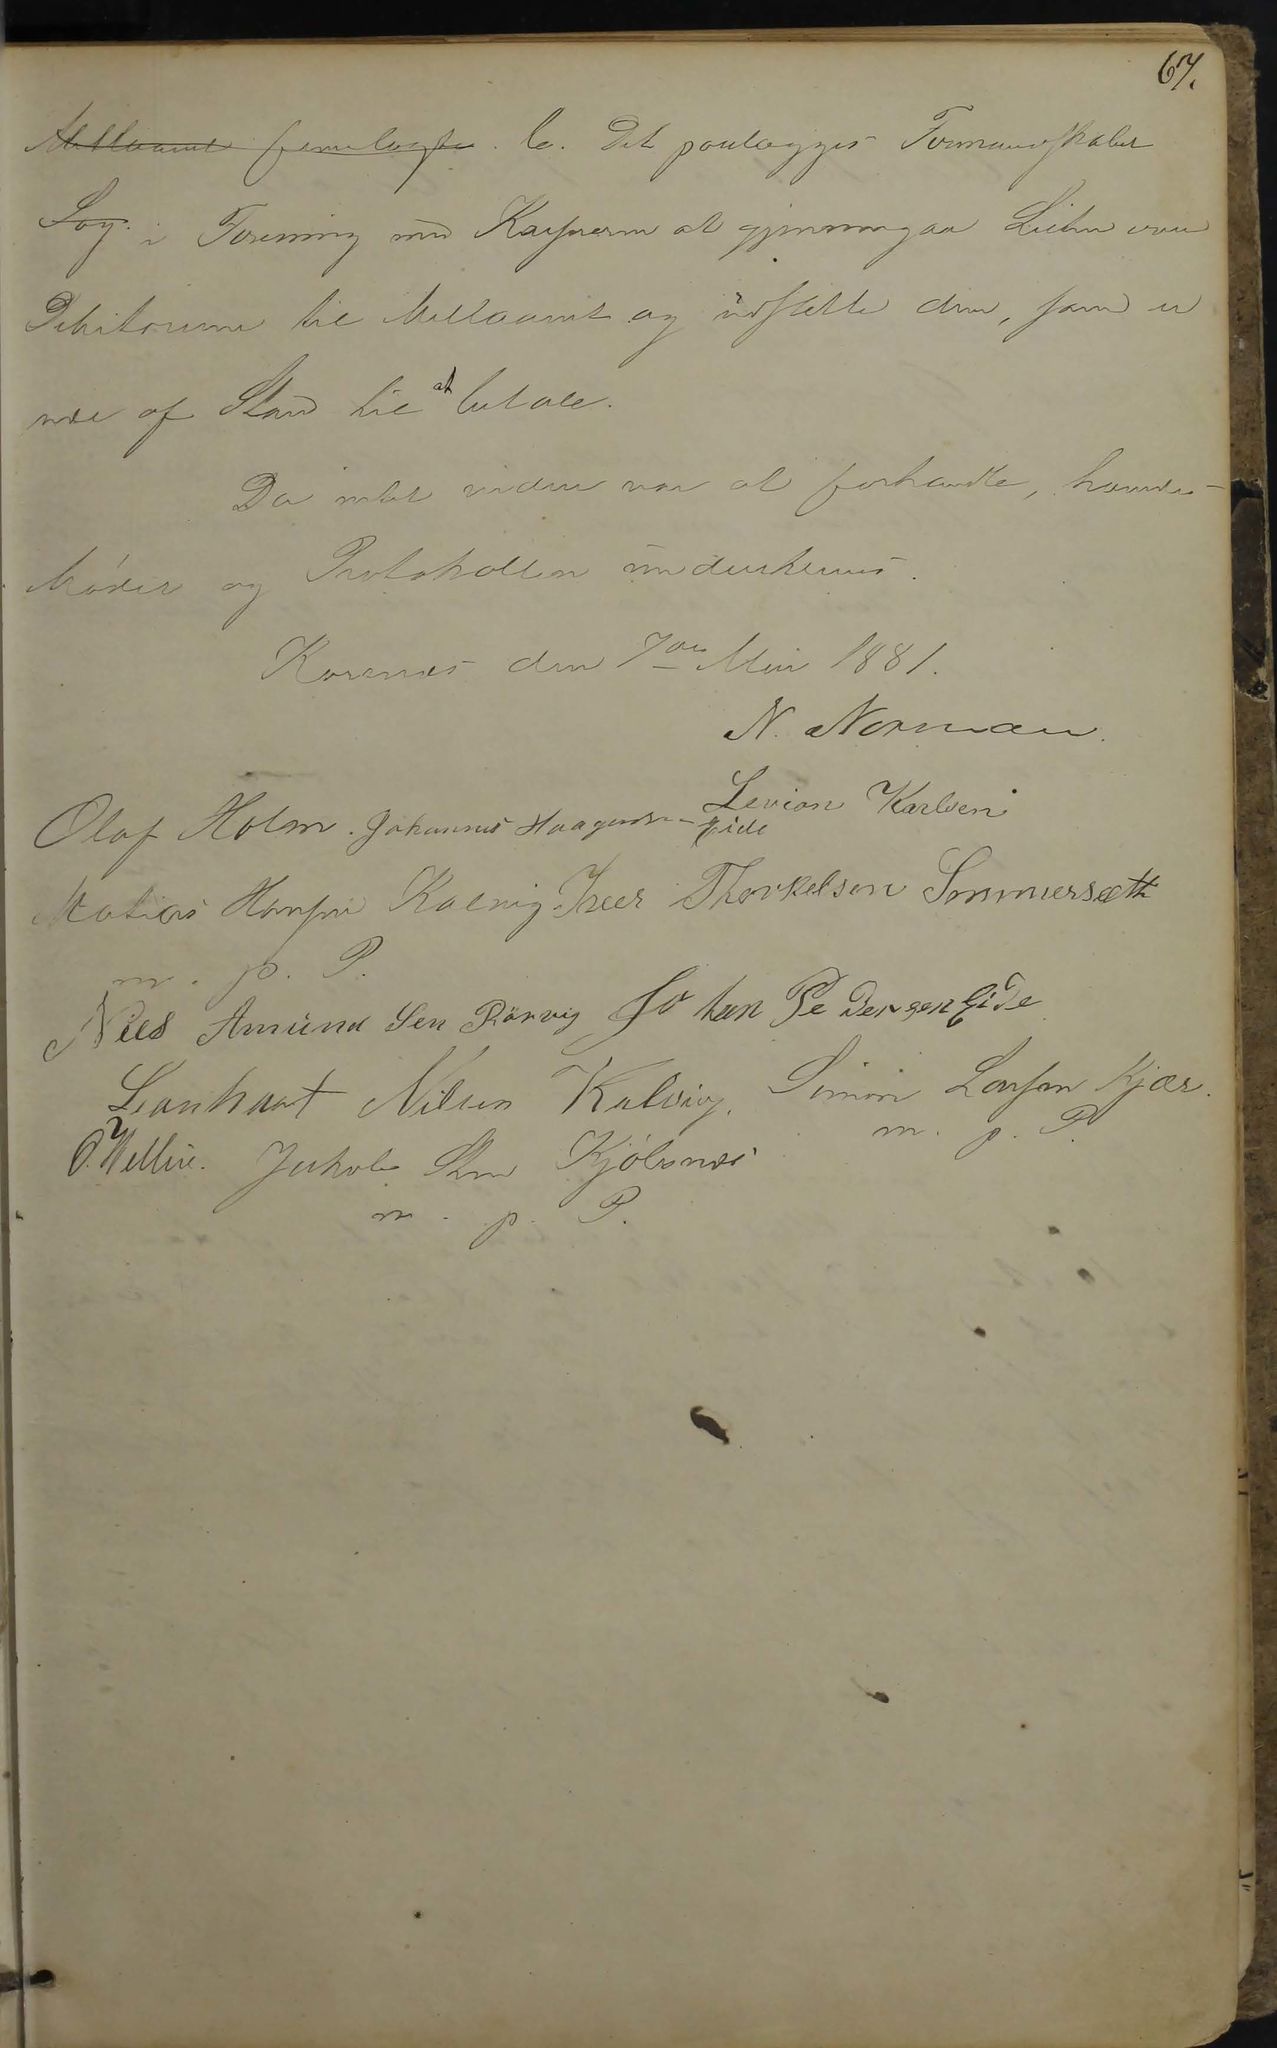 67.
fremlagte. b. Det paalægges Formandskabet
i Forening med Kasseren at gjennemgaa Listen over
Debitorerne til og udsætte dem, som er
ude af Stand til at betale.
Da intet videre var at forhandle, hævedes
Mødet og Protokollen underskreves.
Korsnes den 7de Mai 1881.
N. Norman.
Levion Karlsen
Olaf Holm. Johannes Haagensen Eide
Matias Hansen Kalvig Peder Thorkelsen Sommersæth
m. p. P.
Nils Amund Sen Rörvig Jo han Pe Dersen Eide
Leonhart Nilsen Kalvig. Simon Larsen Kjær.
m. p. P.
O. Mellin. Jakob Kjöbsnes
m. p. P.